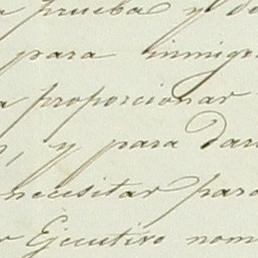 a prueba y de
para inmige
a proporcionar
, y para Dar
necesitar para
Ejecutivo nom